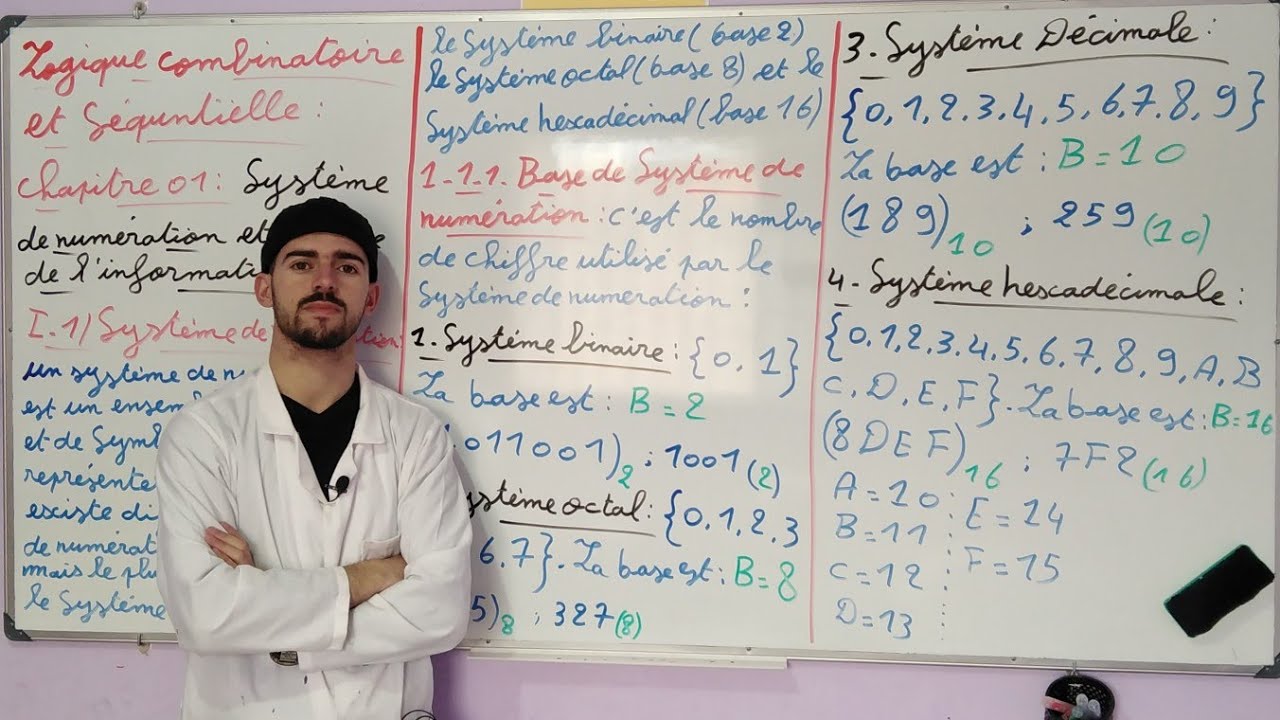 Logique combinatoire
et Séquntiëlle :
chapitre 01 : Système
de numération et
de l'informati
I.1/ Système de tion:
un système de n
est un ensem
et de Symb
représente
existe di
de numérat
mais le plu
le Système
le Système binaire (base 2)
le Système octal (base 8) et le
Système hexadécimal (base 16)
1-1.1. Base de Système de
numération : c'est le nombre
de chiffre utilisé par le
Système de numération :
1. Système binaire : {0, 1}
La base est : B = 2
011001)2 ; 1001(2)
ystème octal : {0,1,2,3
6,7}. La base est : B = 8
5)8 ; 327(8)
3. Système Décimale :
{0,1,2,3,4,5,6,7,8,9}
La base est : B = 10
(189)10 ; 259(10)
4. Système hexadécimale :
{0,1,2,3,4,5,6,7,8,9,A,B
C,D,E,F}. La base est : B=16
(8DEF)16 ; 7F2(16)
A = 10 : E = 14
B = 11 F = 15
C = 12
D = 13